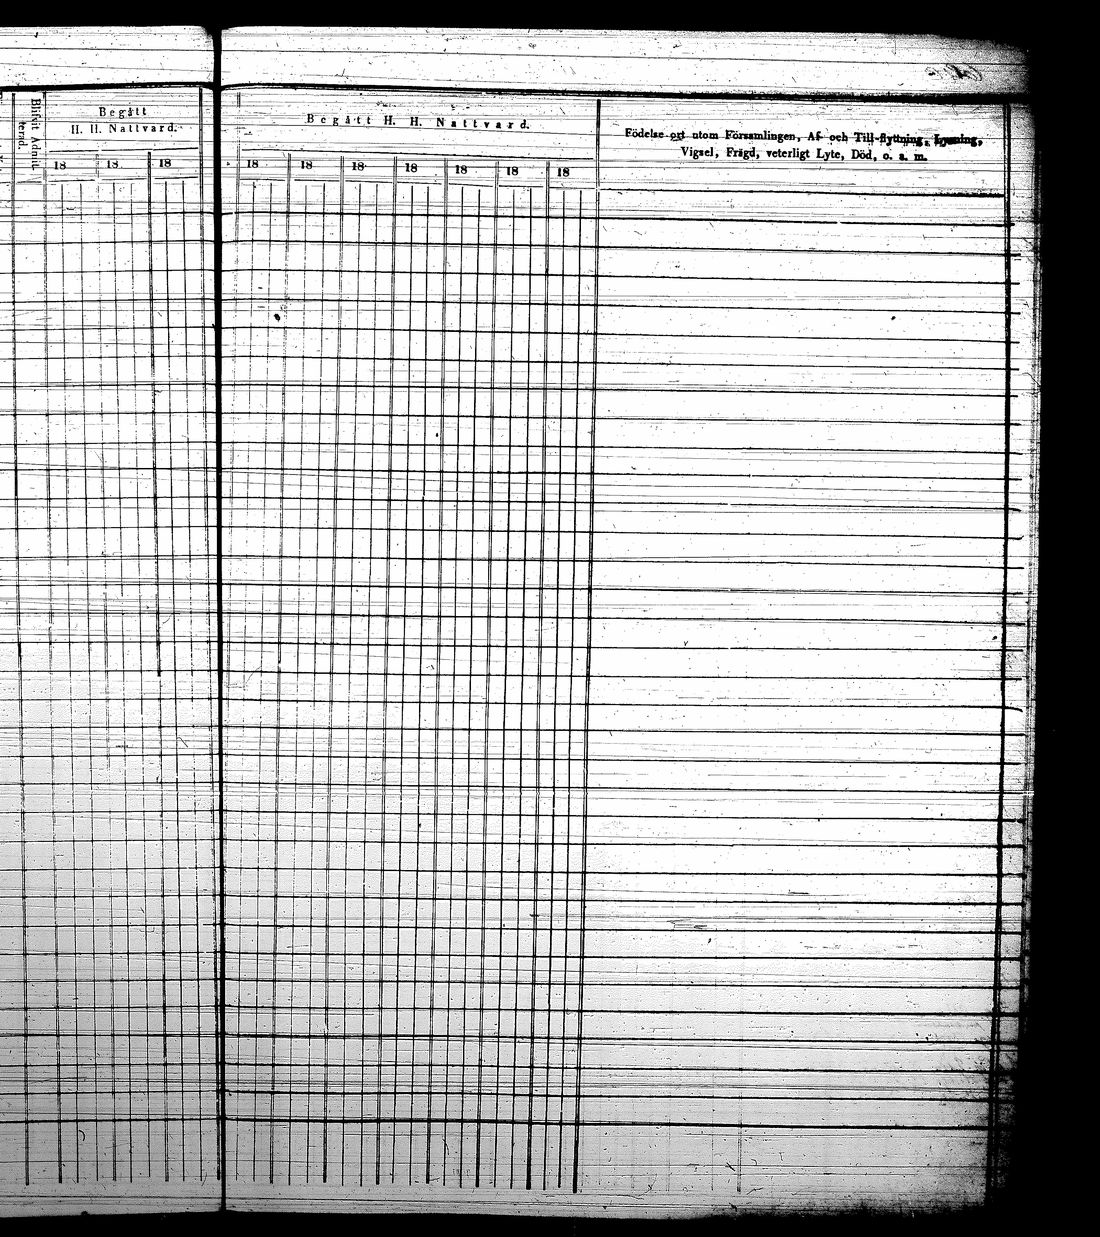 Begått
H. H. Nattvard.
18 18 18
Begått H. H. Nattvard.
18 18 18 18 18 18 18
Födelse-ort utom Församlingen, Af- och Till-flyttning, Lysning,
Vigsel, Frägd, veterligt Lyte, Död, o. s. m.